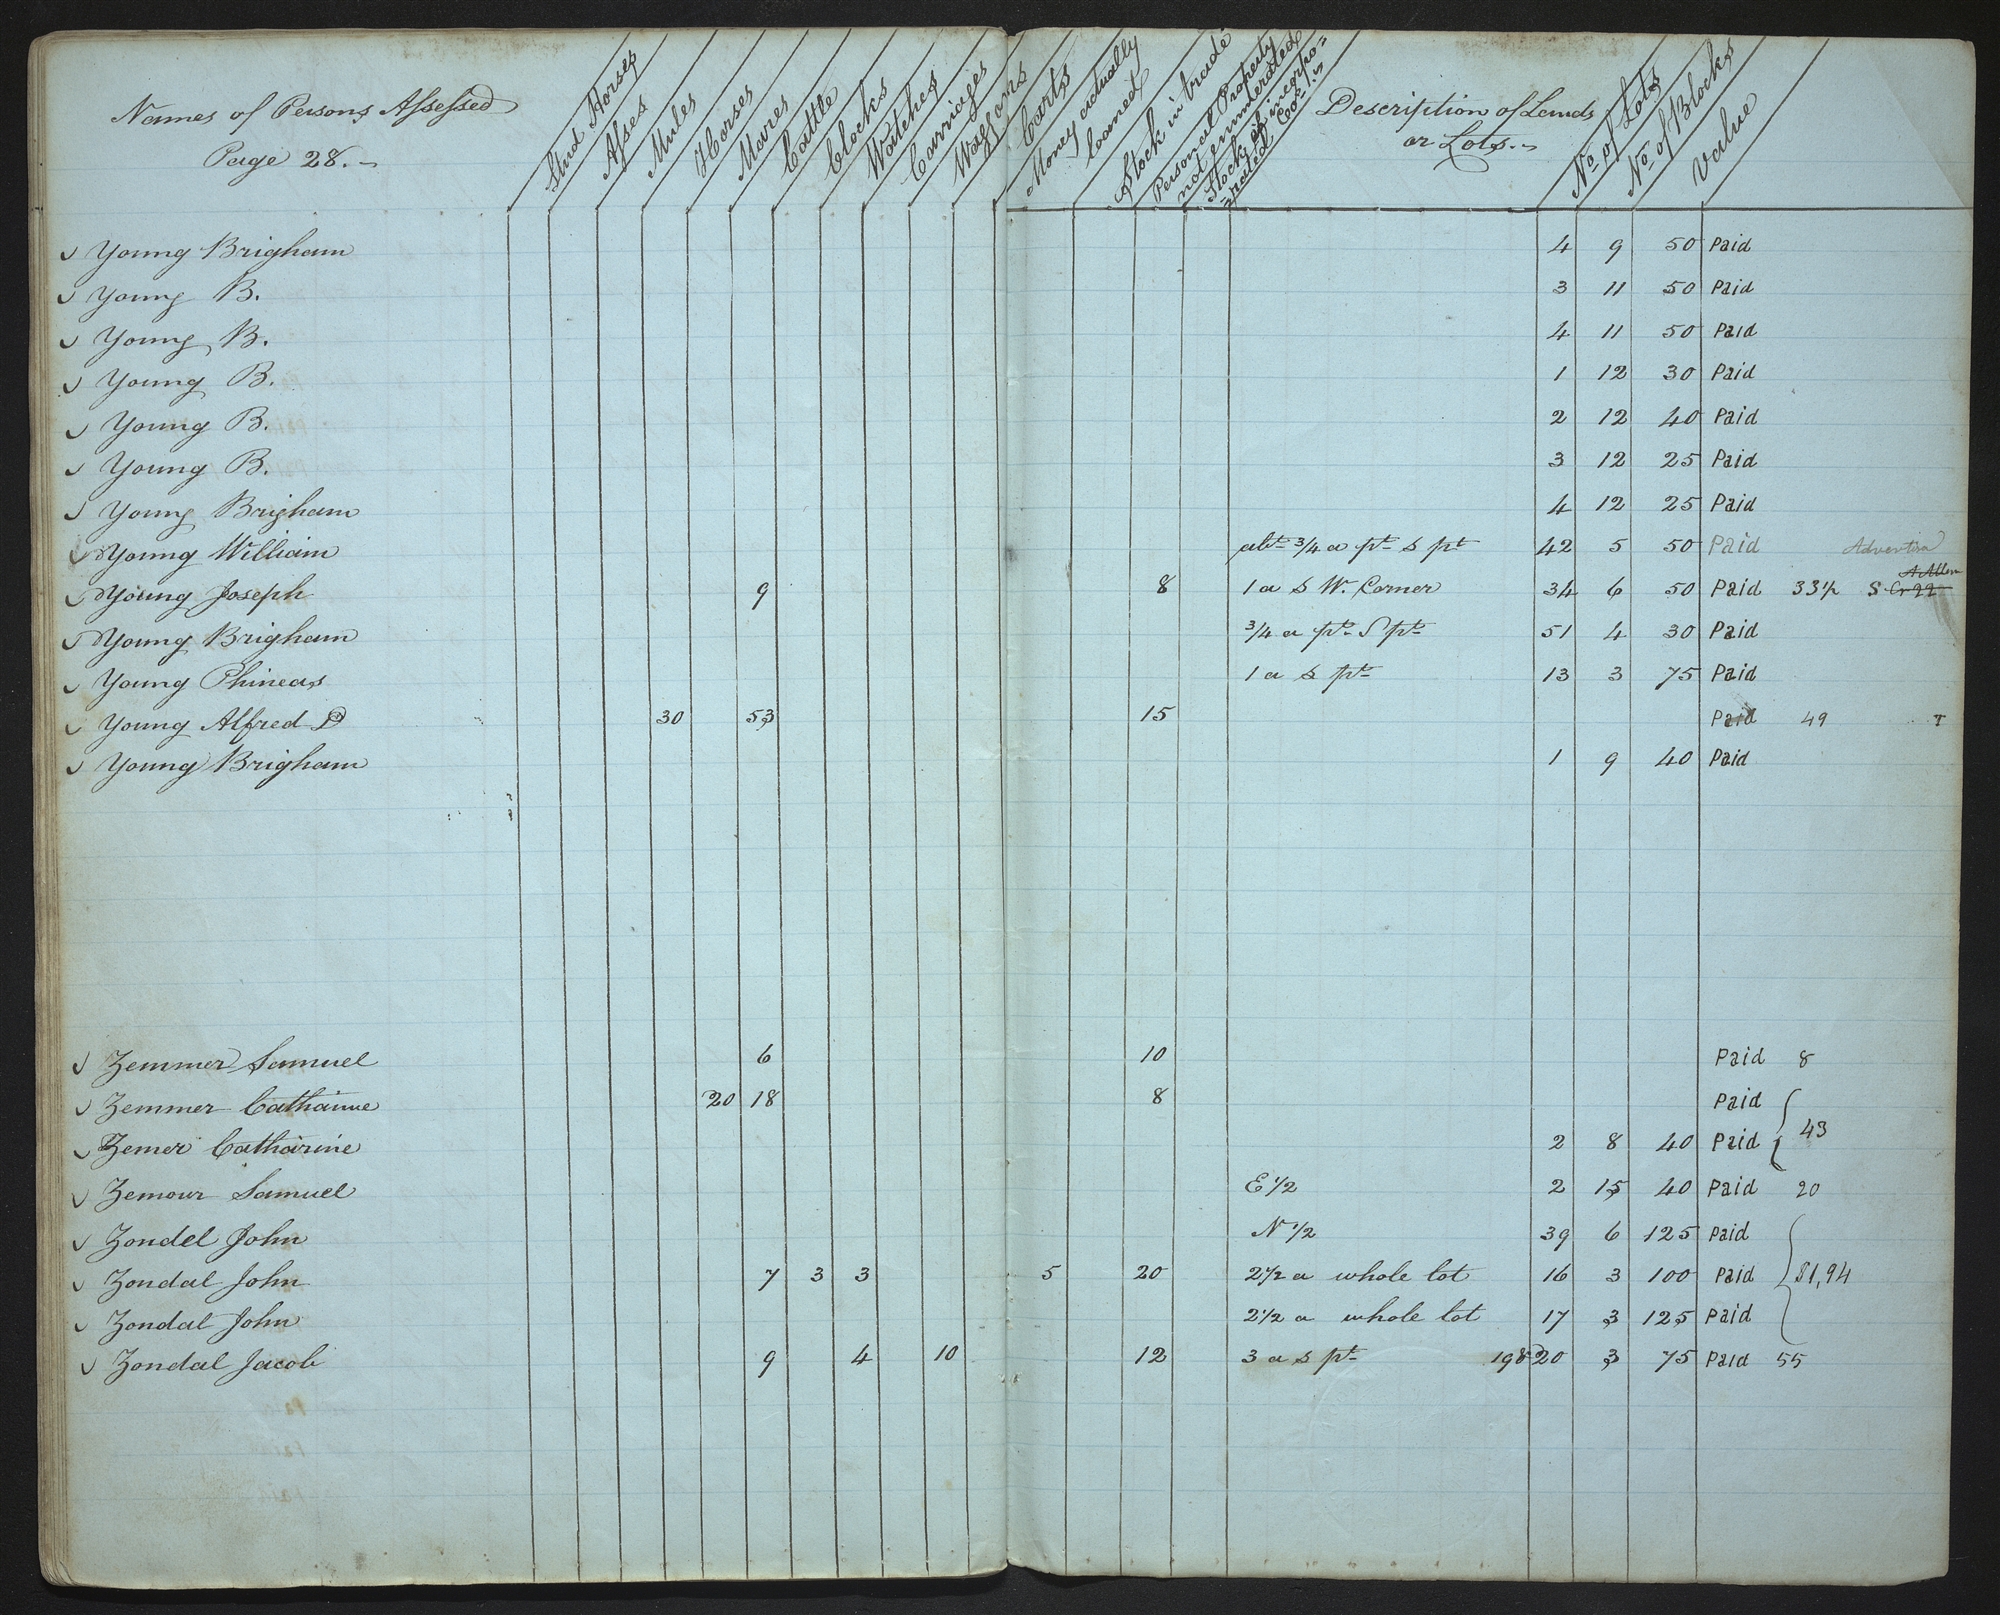 Names of Persons Assessed
Page 28.
Stud Horses
Asses
Mules
Horses
Mares
Cattle
Clocks
Watches
Carriages
Waggons
Carts
Money actually loaned
Stock in trade
Personal Property not enumerated
Stock in incorporated Co's
Description of Lands or Lots.
No of Lots
No of Blocks
Value
Young Brigham 4 9 50 Paid
Young B. 3 11 50 Paid
Young B. 4 11 50 Paid
Young B. 1 12 30 Paid
Young B. 2 12 40 Paid
Young B. 3 12 25 Paid
Young Brigham 4 12 25 Paid
Young William abt 3/4 a pt S pt 42 5 50 Paid
Young Joseph 9 8 1 a S W. Corner 34 6 50 Paid 33½
Young Brigham 3/4 a pt S pt 51 4 30 Paid
Young Phineas 1 a S pt 13 3 75 Paid
Young Alfred D 30 53 15 Paid 49
Young Brigham 1 9 40 Paid
Zemmer Samuel 6 10 Paid 8
Zemmer Catharine 20 18 8 Paid
Zemer Catharine 2 8 40 Paid 43
Zemour Samuel E 1/2 2 15 40 Paid 20
Zondel John N 1/2 39 6 125 Paid
Zondal John 7 3 3 5 20 2½ a whole lot 16 3 100 Paid 81,94
Zondal John 2½ a whole lot 17 3 125 Paid
Zondal Jacob 9 4 10 12 3 a S pt 19 & 20 3 75 Paid 55